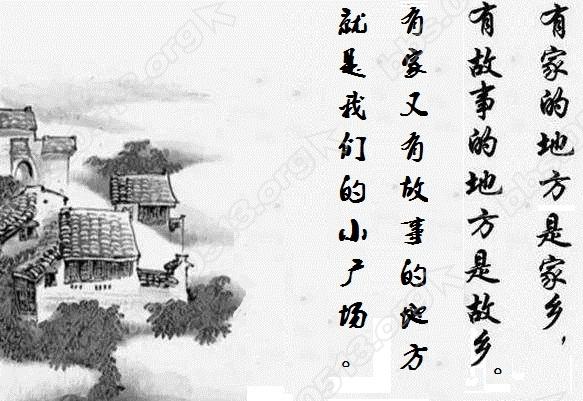 有家的地方是家乡，
有故事的地方是故乡。
有家又有故事的地方
就是我们的小广场。
bbs.0513.org